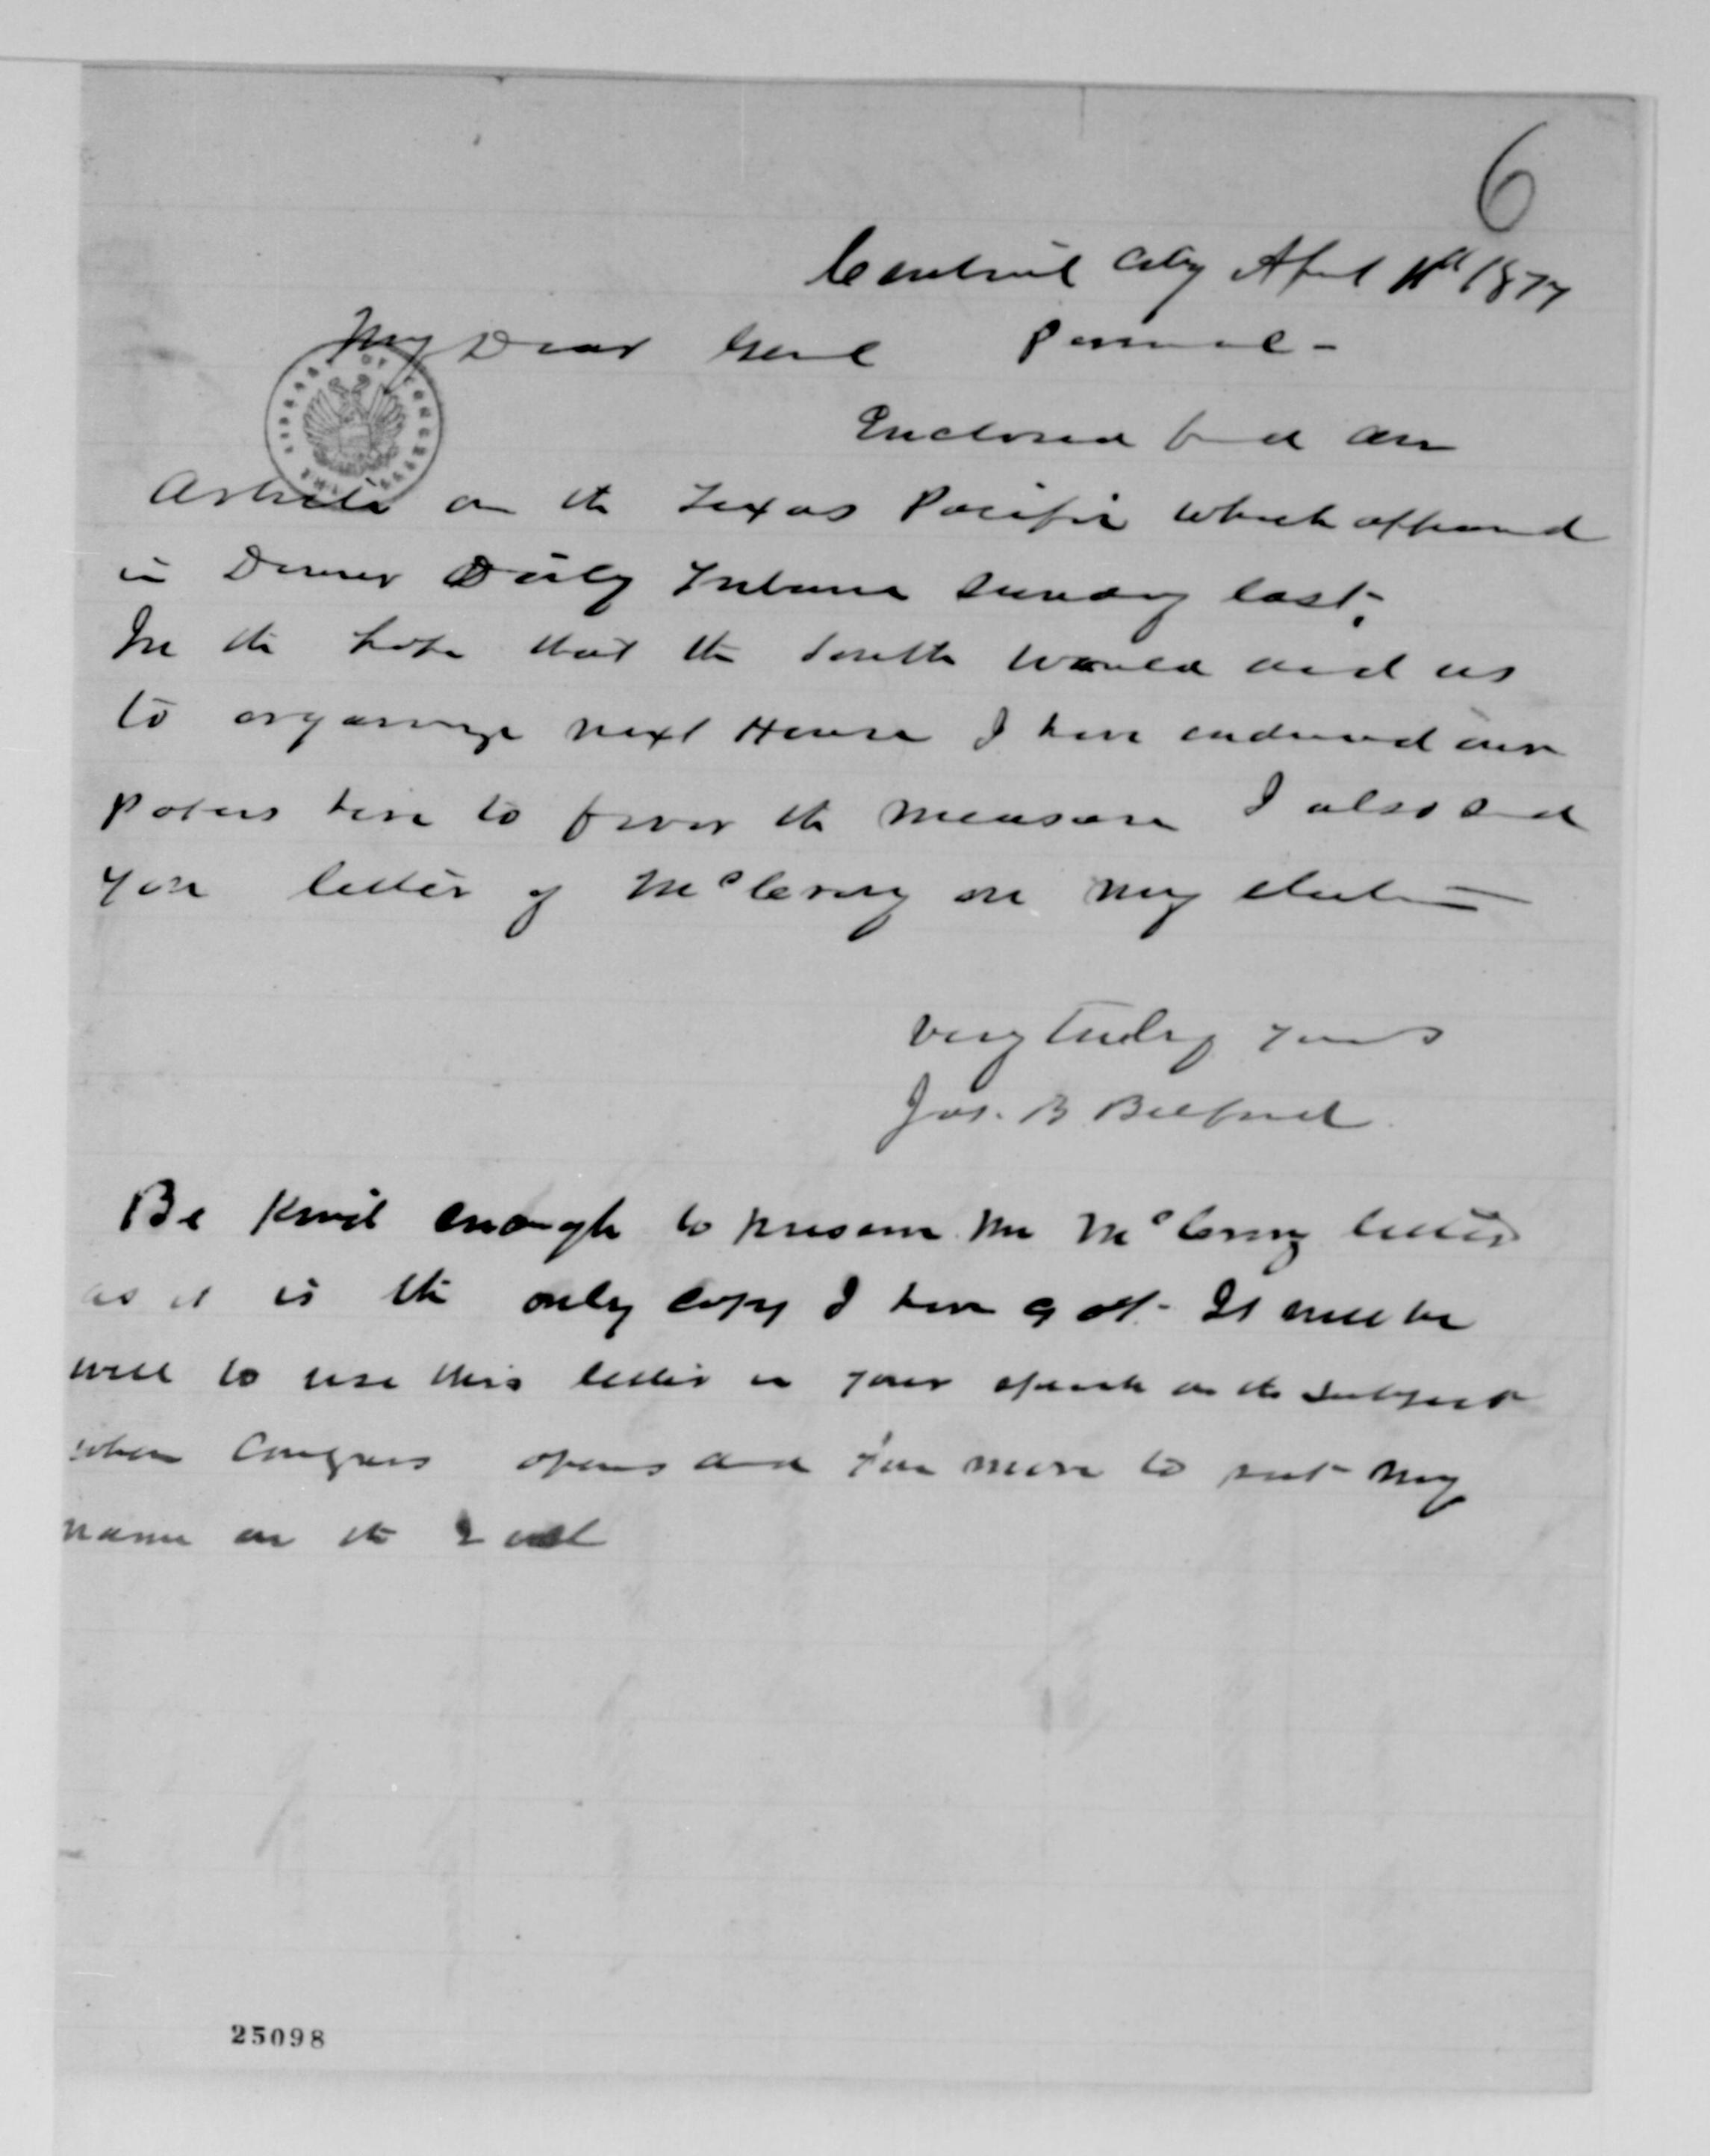 6
Central City April 11th 1877
My Dear Genl Personal -
Enclosed find an
Article on the Texas Pacific which appeared
in Denver Daily Tribune Sunday last.
In the hope that the South would aid us
to organize next House I have endeavored our
papers here to favor the measure I also send
you letter of McCrary on my election
Very truly yours
Jas. B Belford
Be kind enough to preserve the McCrary letter
as it is the only copy I have got - It will be
well to use this letter in your speech on the subject
when Congress opens and you move to put my
name on the roll
25098